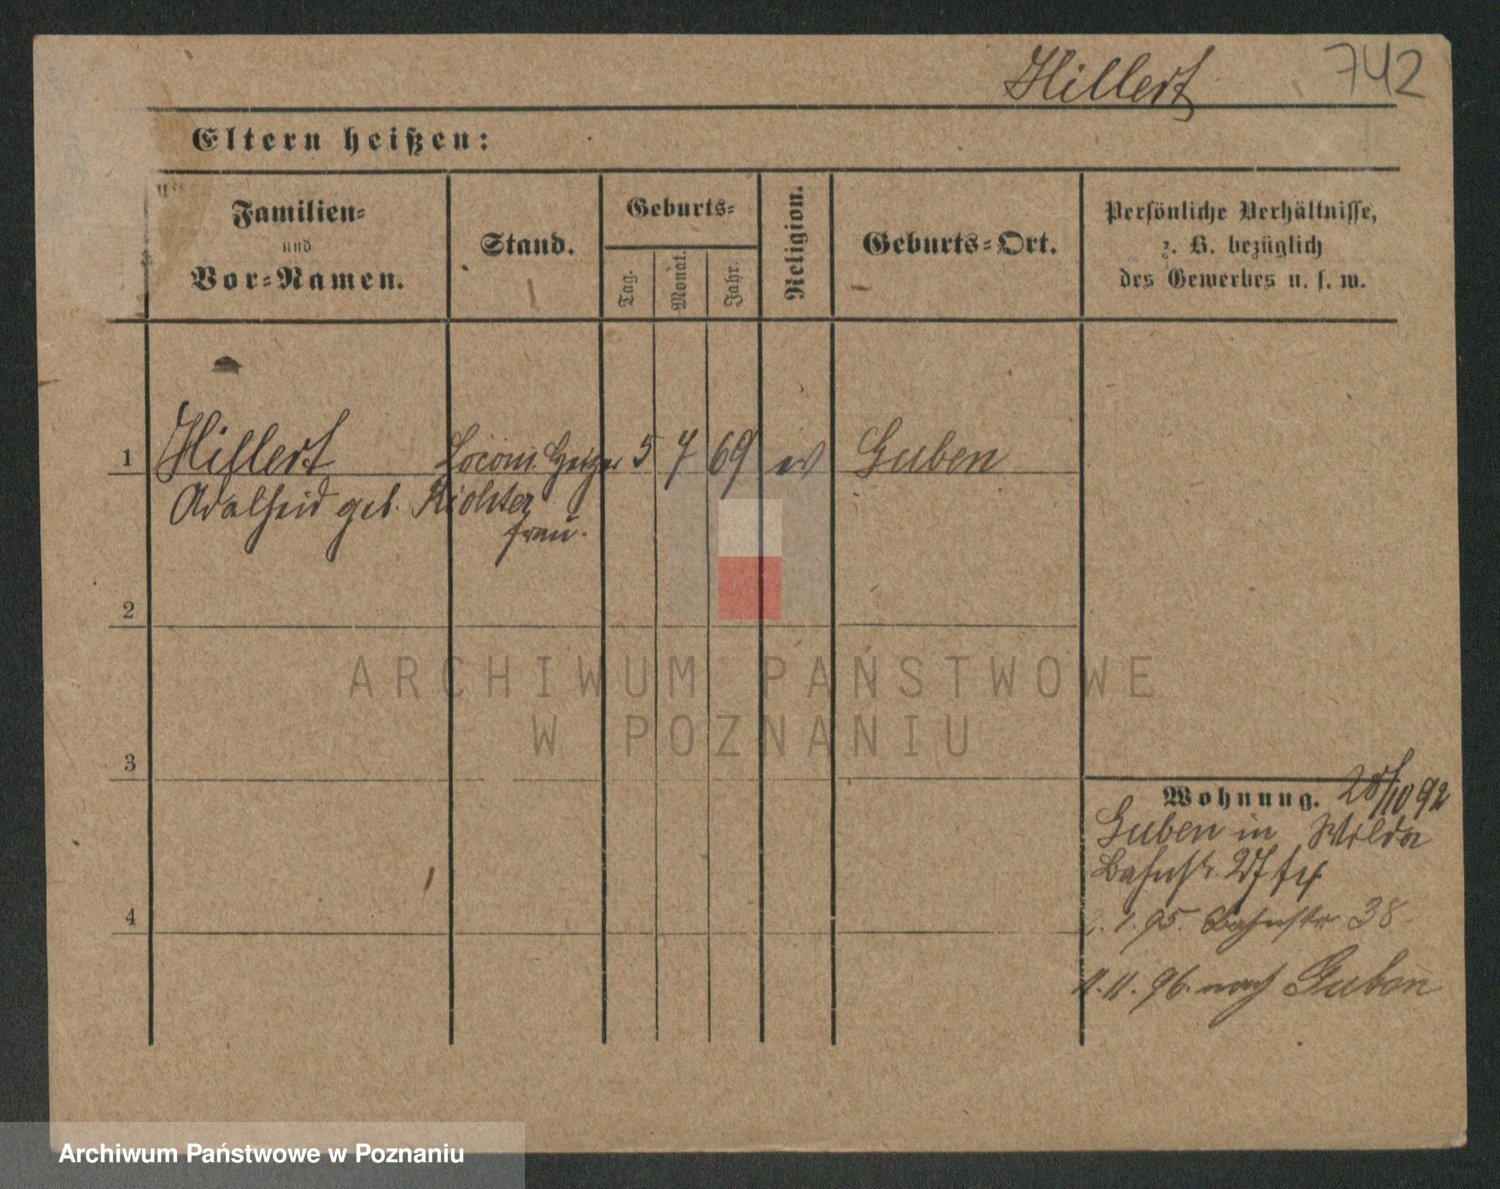 Hillert 742
Eltern heißen:
Familien-
und
Vor-Namen.
Stand.
Geburts-
Tag.
Monat.
Jahr.
Religion.
Geburts-Ort.
Persönliche Verhältnisse,
z. B. bezüglich
des Gewerbes u. s. w.
1 Hillert Locom. Heizer 5 7 69 ev Guben
Adalheid geb. Richter
frau.
2
3
Wohnung. 28/10 92
Guben in Wilda
Bahnstr.
4
1. 95. Bahnstr 38
11. 96. nach Guben
ARCHIWUM PAŃSTWOWE
W POZNANIU
Archiwum Państwowe w Poznaniu